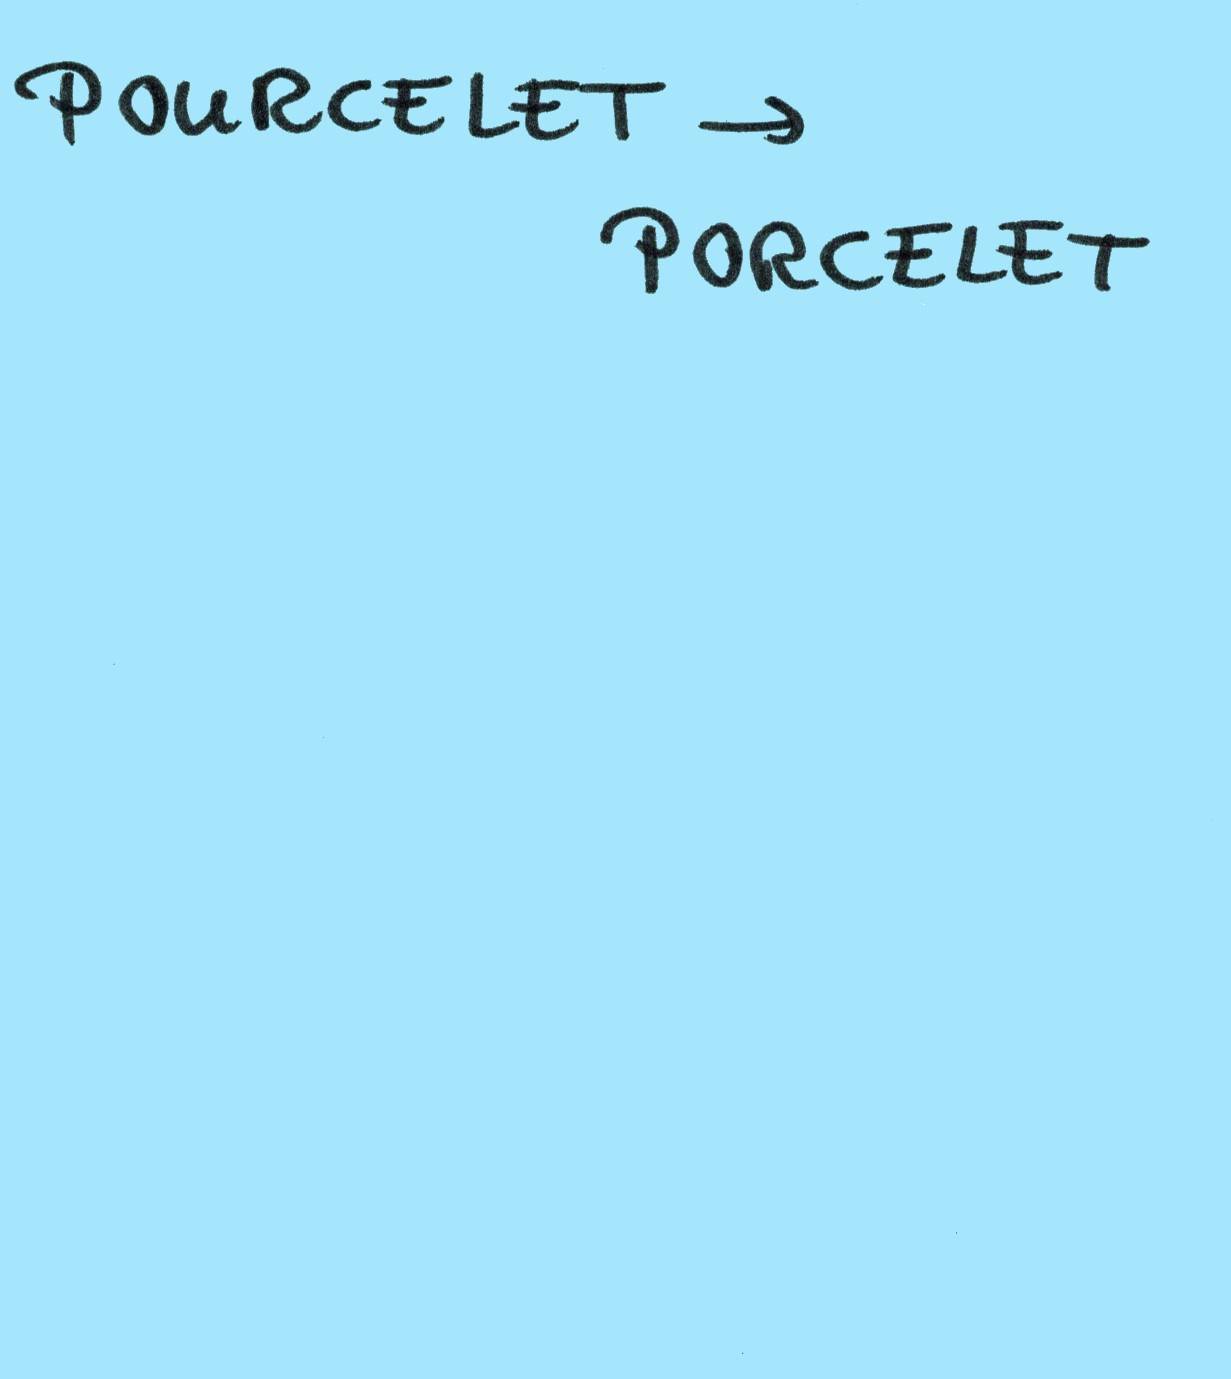 POURCELET →
PORCELET